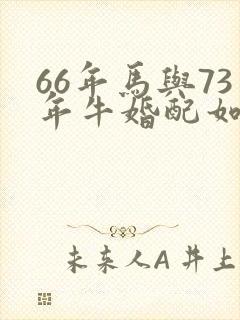 66年馬與73
年牛婚配如
未來人A 井上